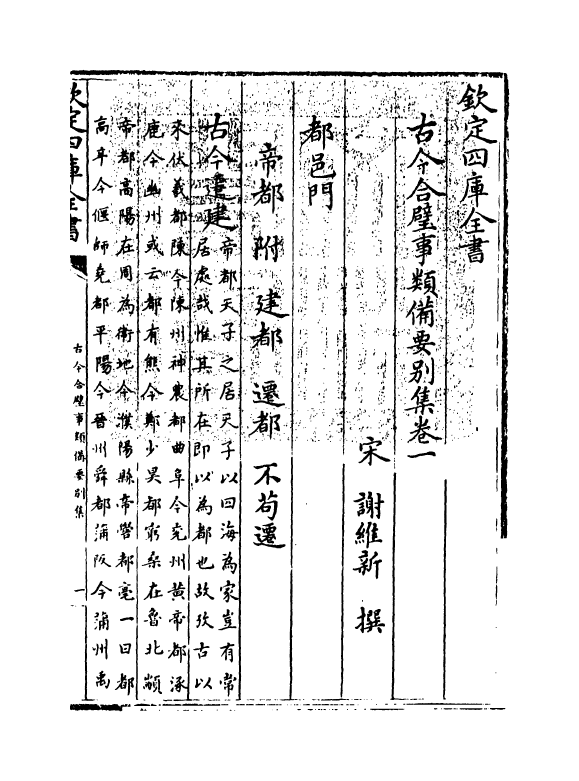 欽定四庫全書
古今合璧事類備要别集卷一
宋 謝維新 撰
都邑門
帝都 附 建都 遷都 不茍遷
古今遷建
帝都天子之居天子以四海為家豈有常
居處哉惟其所在即以為都也故攷古以
來伏羲都陳今陳州神農都曲阜今兖州黄帝都涿
鹿今幽州或云都有熊今鄭少昊都窮桑在魯北顓
帝都高陽在周為衛地今濮陽縣帝嚳都亳一曰都
高辛今偃師堯都平陽今晉州舜都蒲阪今蒲州禹
欽定四庫全書
古今合璧事類備要别集
一